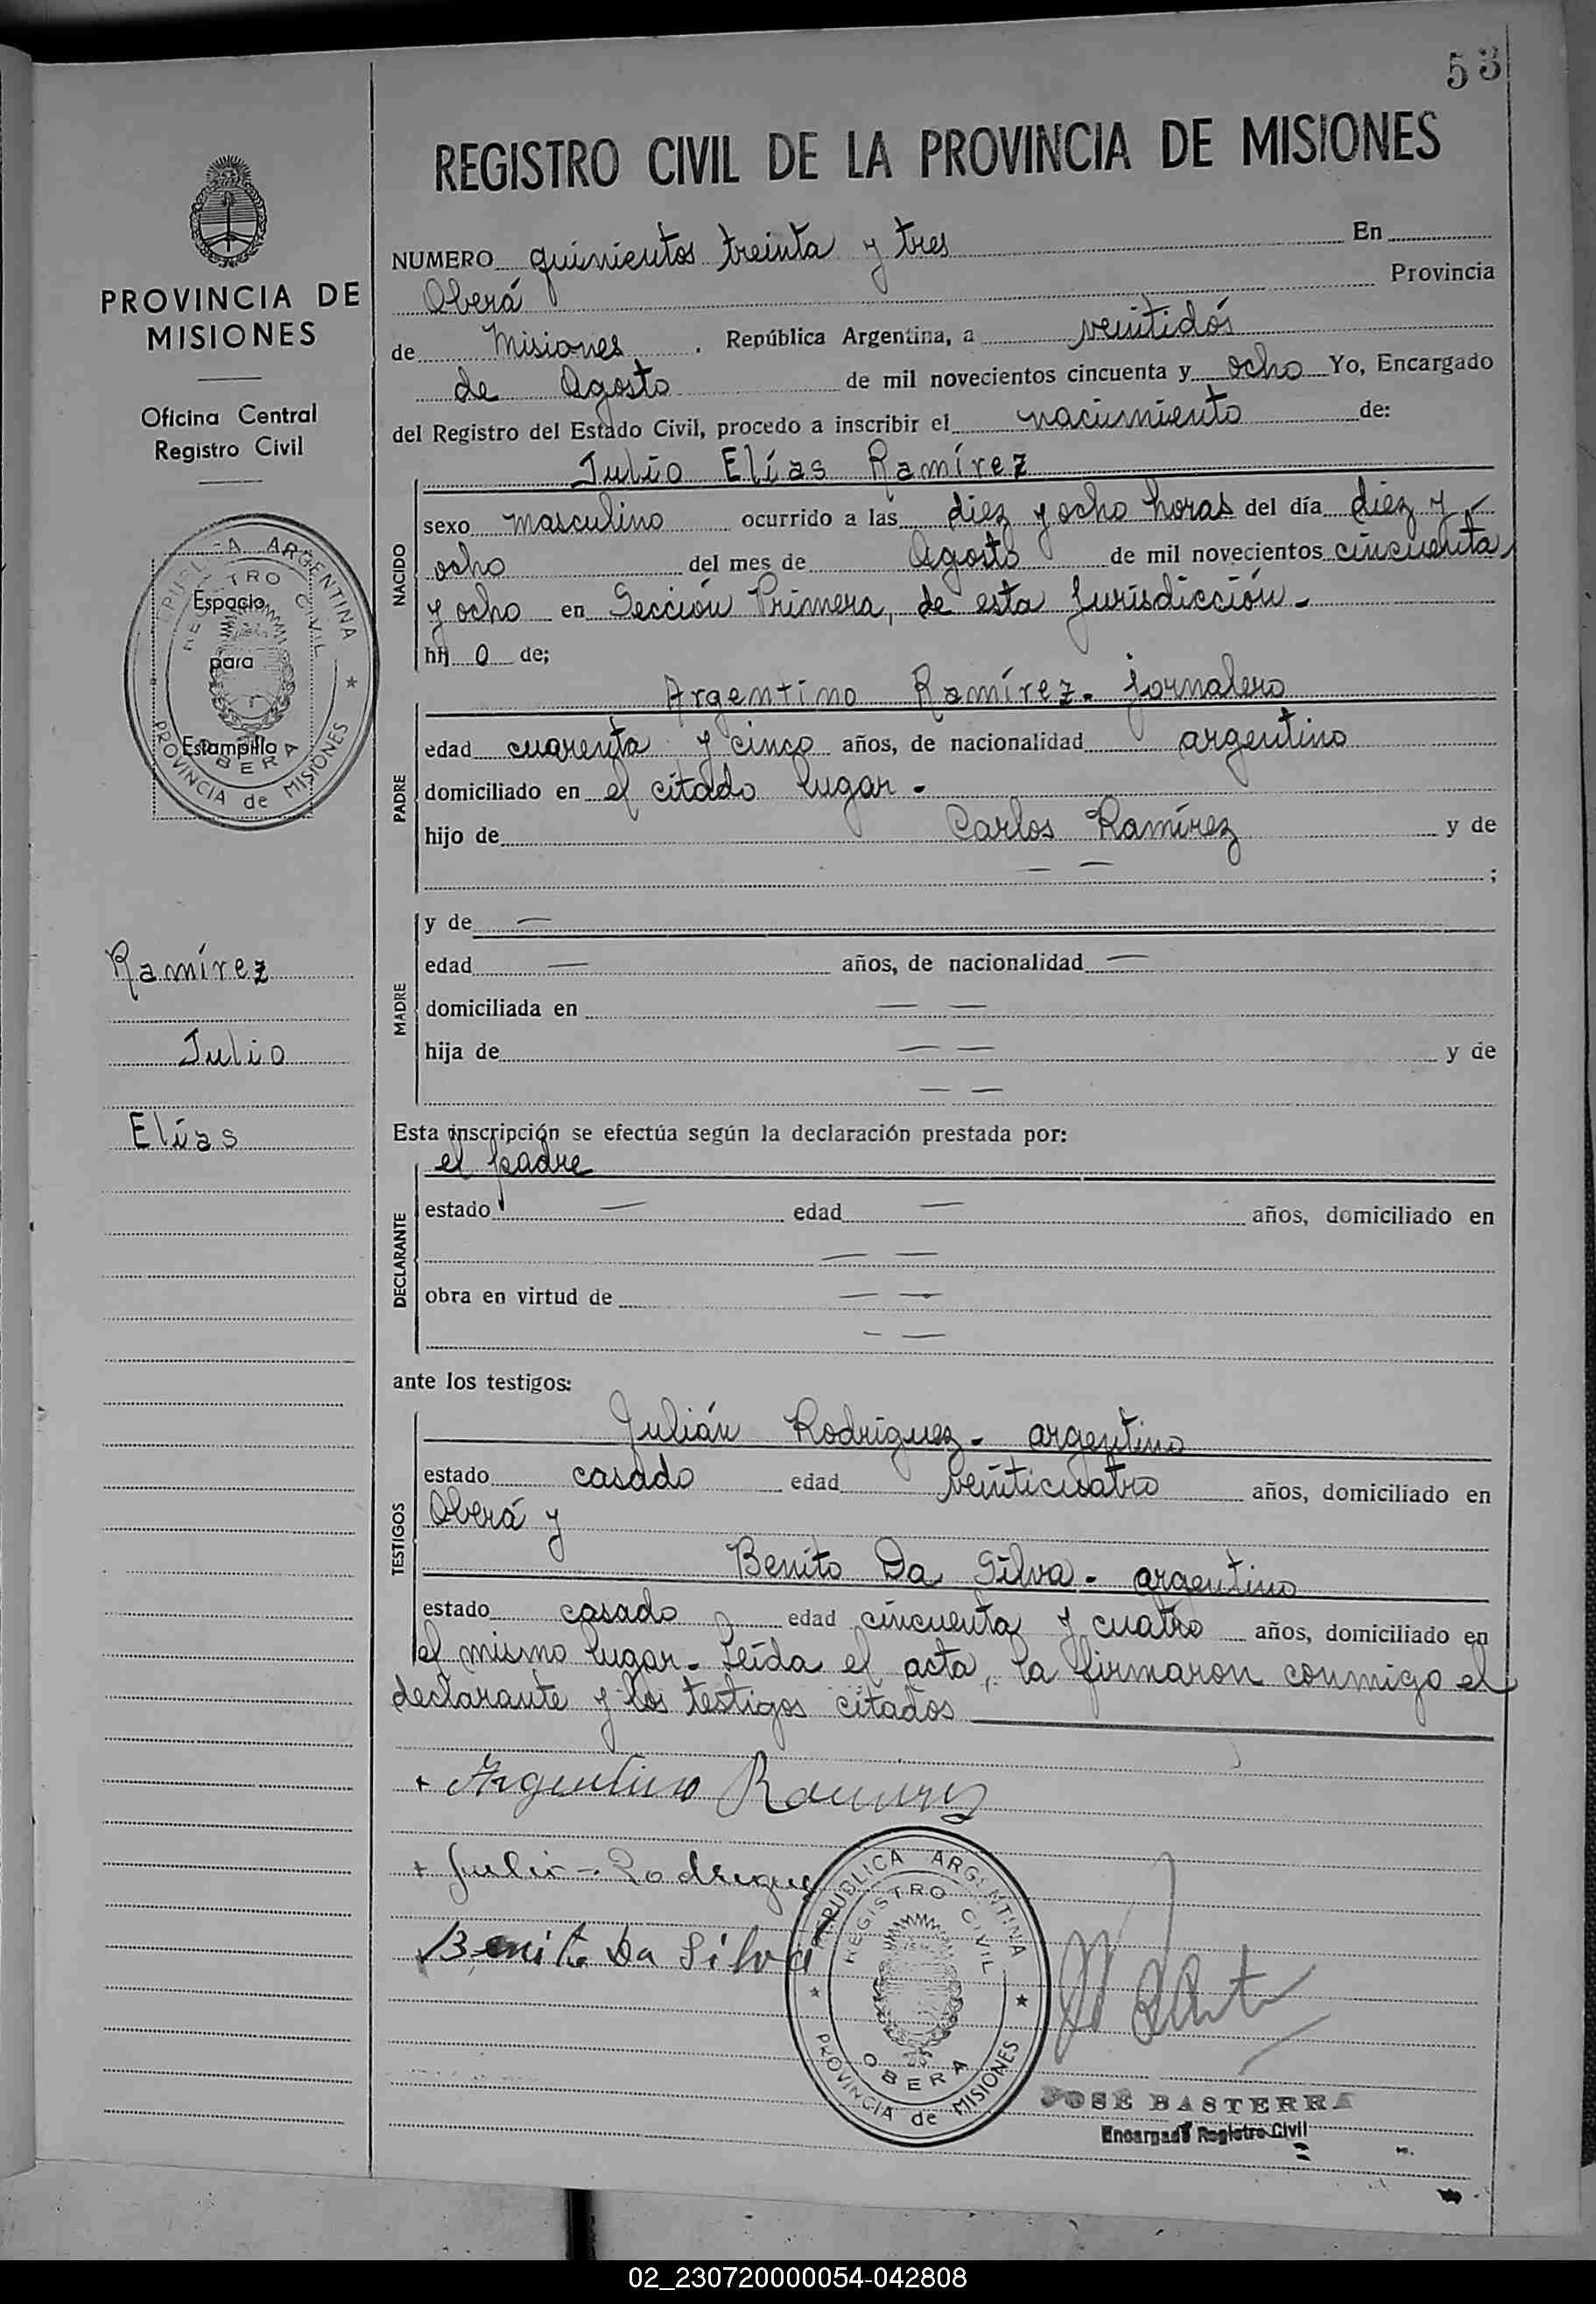 53
REGISTRO CIVIL DE LA PROVINCIA DE MISIONES
NUMERO quinientos treinta y tres En
Oberá Provincia
de Misiones . República Argentina, a veintidós
de Agosto de mil novecientos cincuenta y ocho Yo, Encargado
del Registro del Estado Civil, procedo a inscribir el nacimiento de:
Julio Elías Ramírez
NACIDO
sexo masculino ocurrido a las diez y ocho horas del día diez y
ocho del mes de Agosto de mil novecientos cincuenta
y ocho en Sección Primera, de esta Jurisdicción.-
hij o de;
Argentino Ramírez- jornalero
PADRE
edad cuarenta y cinco años, de nacionalidad argentino
domiciliado en el citado lugar -
hijo de Carlos Ramírez y de
— — ;
MADRE
y de —
edad — años, de nacionalidad —
domiciliada en — —
hija de — — y de
— —
Esta inscripción se efectúa según la declaración prestada por:
el padre
DECLARANTE
estado — edad — años, domiciliado en
— —
obra en virtud de — —
— —
ante los testigos:
TESTIGOS
Julián Rodríguez- argentino
estado casado edad veinticuatro años, domiciliado en
Oberá y
Benito Da Silva- argentino
estado casado edad cincuenta y cuatro años, domiciliado en
el mismo lugar- Leída el acta, la firmaron conmigo el
declarante y los testigos citados
+ Argentino Ramirez
+ Julio - Rodriguez
Benito Da Silva
REPUBLICA ARGENTINA
REGISTRO CIVIL
OBERA
PROVINCIA de MISIONES
JOSE BASTERRA
Encargado Registro Civil
PROVINCIA DE
MISIONES
Oficina Central
Registro Civil
REPUBLICA ARGENTINA
REGISTRO CIVIL
Espacio
para
Estampilla
OBERA
PROVINCIA de MISIONES
Ramírez
Julio
Elías
02_230720000054-042808